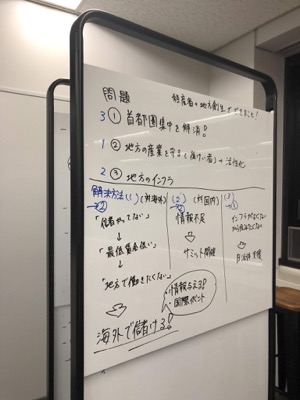 問題 経産省の地方創生でできること!
3 ① 首都圏集中を解消!
1 ② 地方の産業を守る(働け者)→活性化
2 ③ 地方のインフラ
解決方法(1)(対海外) (2)(対国内) (3)
② ② ①
「儲ってない」
↓
「最低賃金低い」
↓
「地方で働きたくない」
海外で儲ける!
情報不足
サミット開催
・情報与える!
・国際ポイント
インフラがなくなった
自治体支援